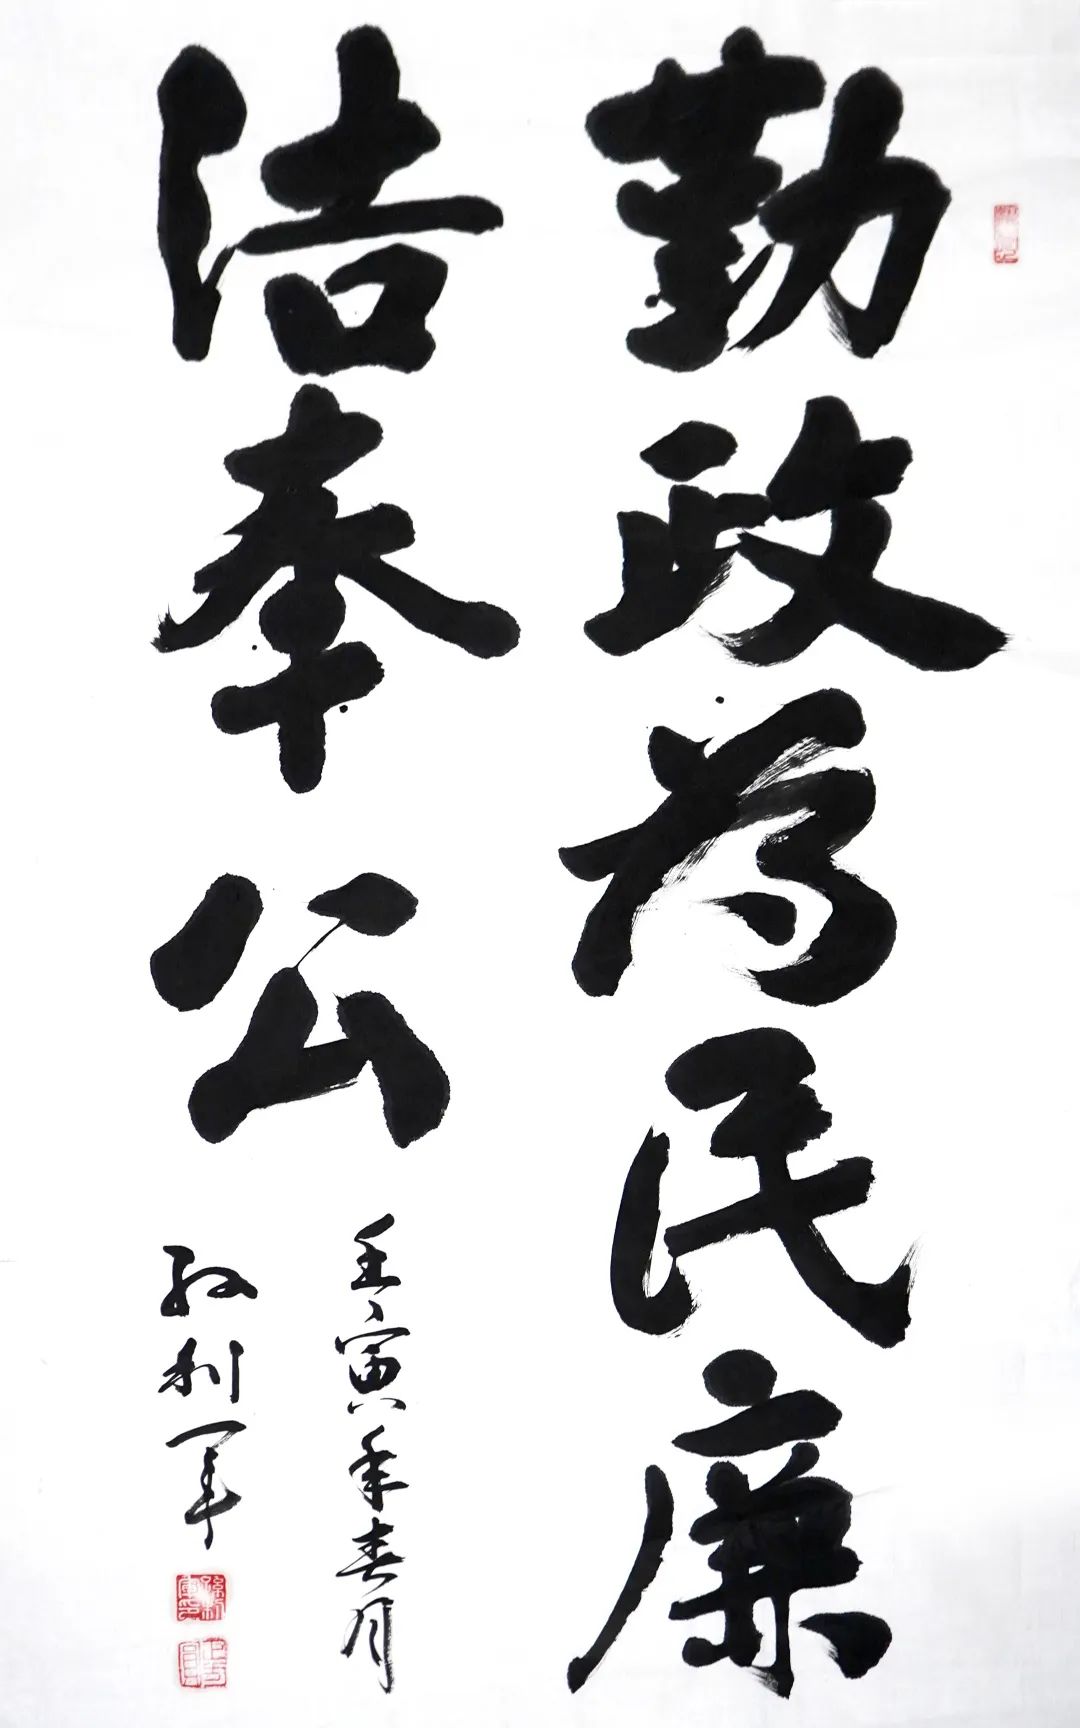 勤政为民廉
洁奉公
壬寅年春月
孙利军